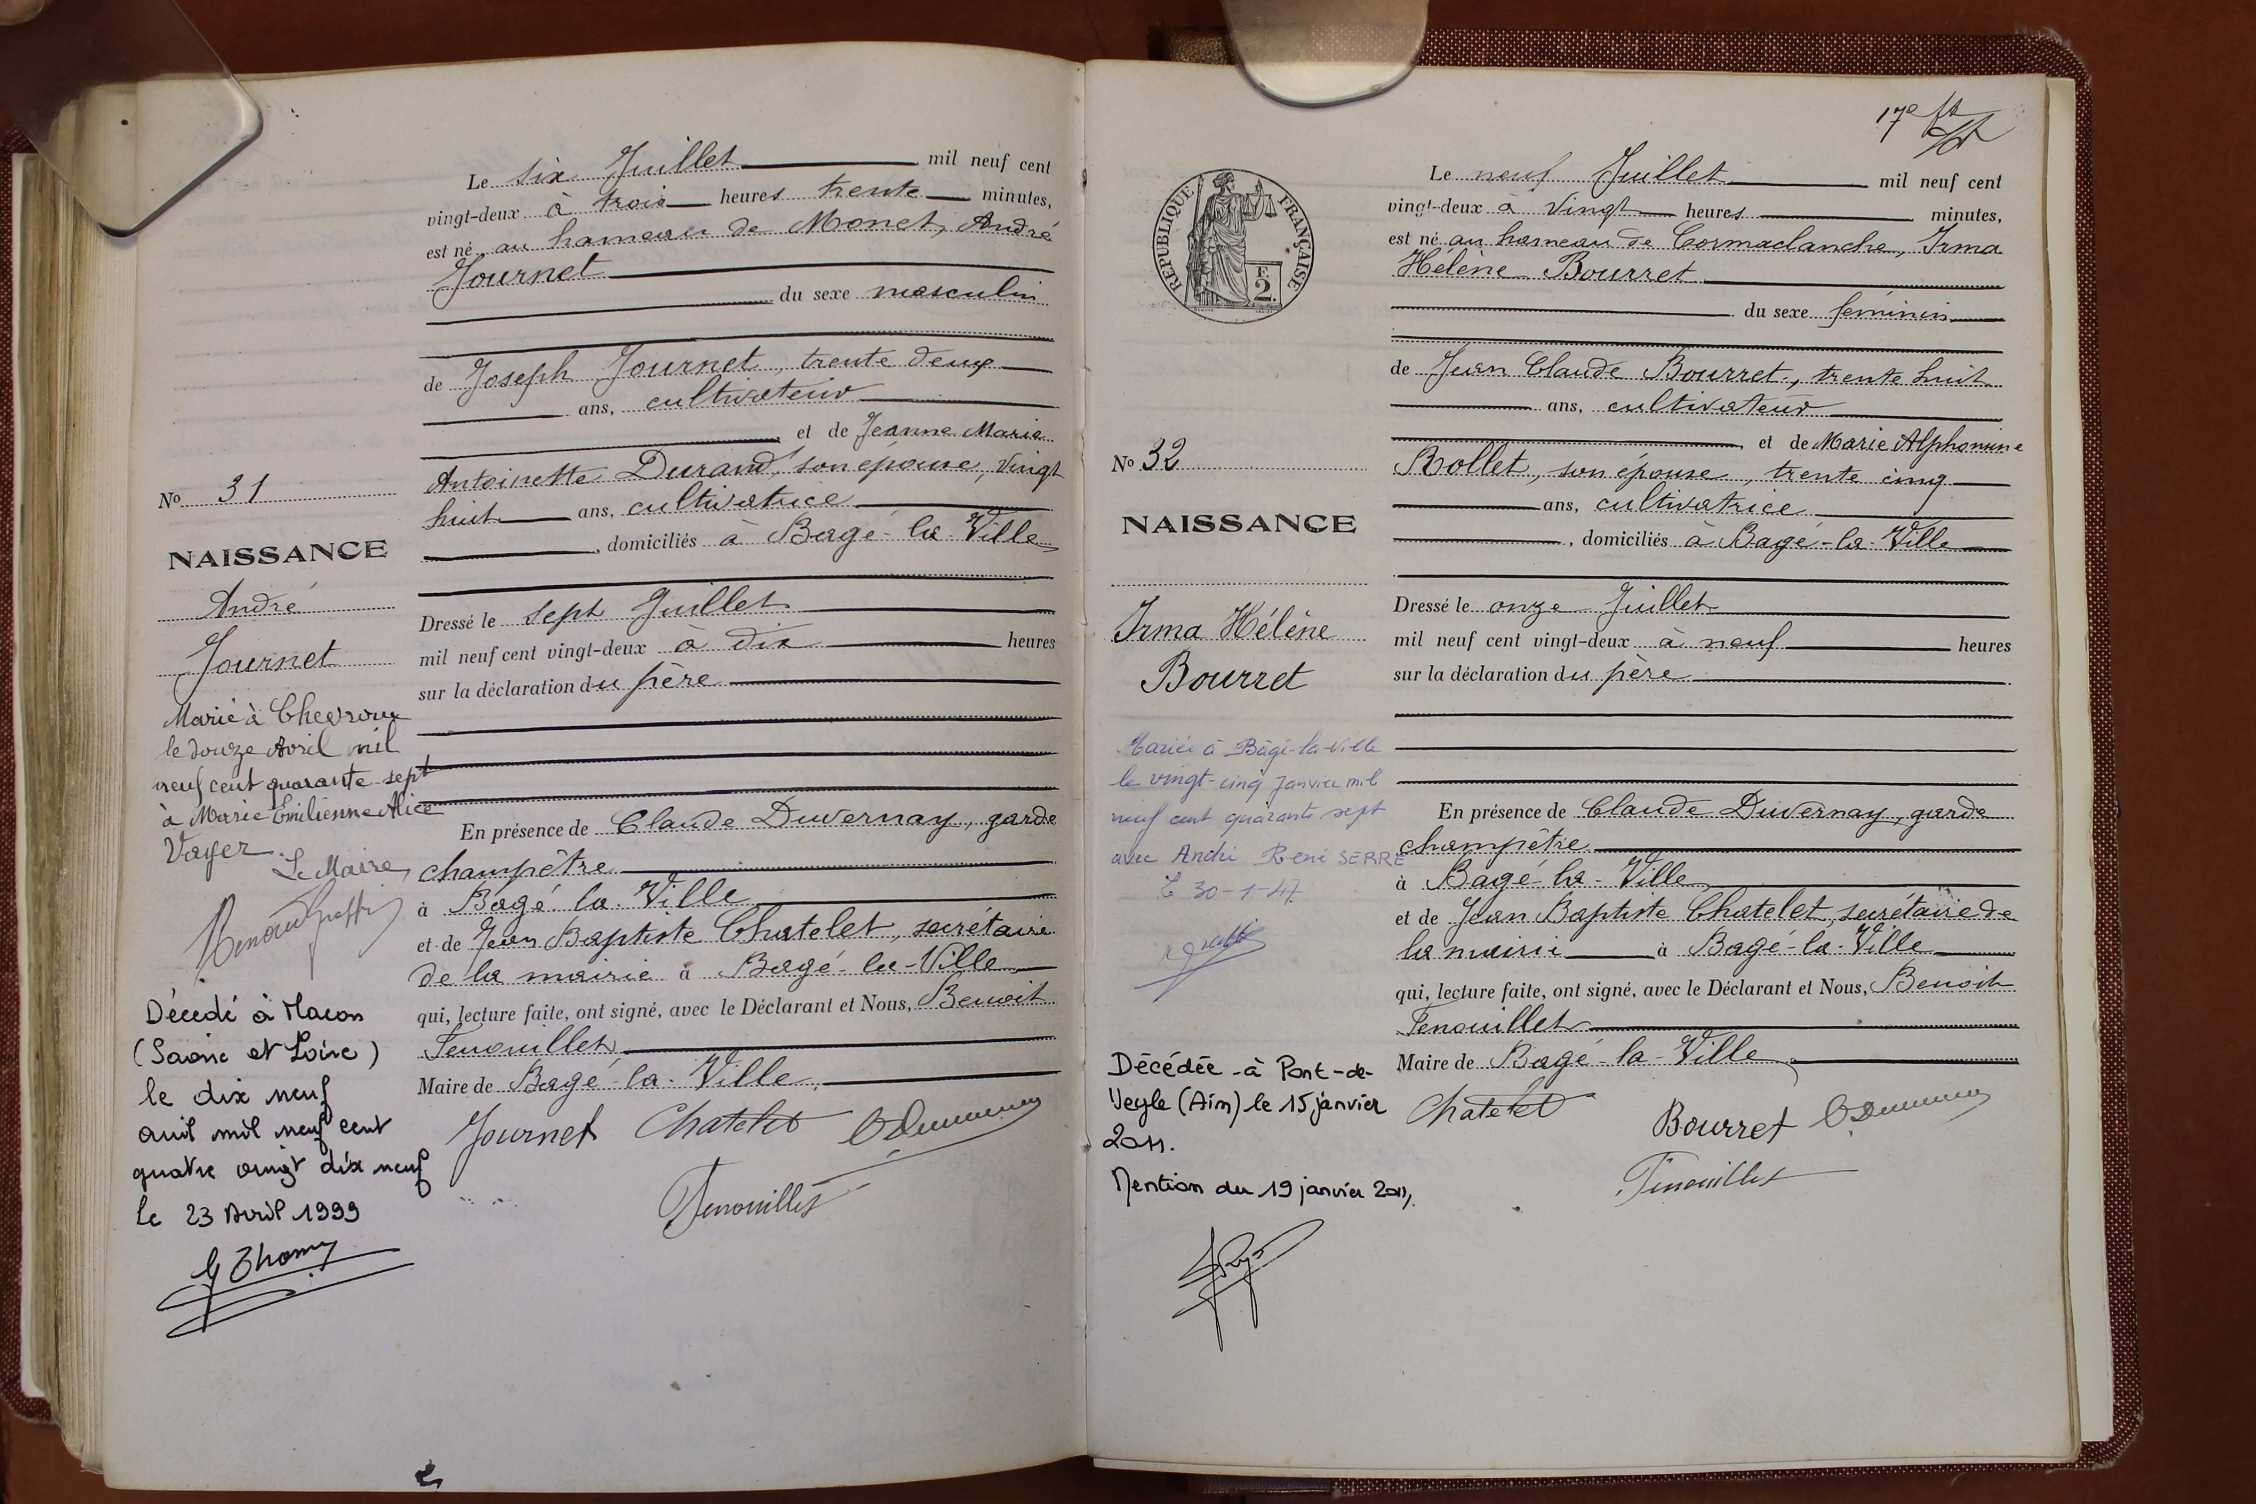 Le six Juillet mil neuf cent
vingt-deux à trois heures trente minutes,
est né au hameau de Monet, André
Journet
du sexe masculin
de Joseph Journet, trente deux
ans, cultivateur
et de Jeanne Marie
Antoinette Durand, son épouse, vingt
huit ans, cultivatrice
, domiciliés à Bagé-la-Ville
Dressé le sept Juillet
mil neuf cent vingt-deux à dix heures
sur la déclaration du père
En présence de Claude Duvernay, garde
champêtre
à Bagé-la-Ville
et de Jean Baptiste Chatelet, secrétaire
de la mairie à Bagé-la-Ville
qui, lecture faite, ont signé, avec le Déclarant et Nous, Benoit
Fenouillet
Maire de Bagé-la-Ville.
Journet Chatelet CDuvernay
Fenouillet
No 31
NAISSANCE
André
Journet
Marié à Chevroux
le douze Avril mil
neuf cent quarante-sept
à Marie Emilienne Alice
Vayer.
Le Maire,
Décédé à Macon
(Saône et Loire)
le dix neuf
avril mil neuf cent
quatre vingt dix neuf
Le 23 Avril 1999
17e
RÉPUBLIQUE FRANÇAISE
F.
2
Le neuf Juillet mil neuf cent
vingt-deux à vingt heures minutes,
est né au hameau de Cormaclanche, Irma
Hélène Bourret
du sexe féminin
de Jean Claude Bourret, trente huit
ans, cultivateur
et de Marie Alphonsine
Rollet, son épouse, trente cinq
ans, cultivatrice
, domiciliés à Bagé-la-Ville
Dressé le onze Juillet
mil neuf cent vingt-deux à neuf heures
sur la déclaration du père
En présence de Claude Duvernay, garde
champêtre
à Bagé-la-Ville
et de Jean Baptiste Chatelet, secrétaire de
la mairie à Bagé-la-Ville
qui, lecture faite, ont signé, avec le Déclarant et Nous, Benoit
Fenouillet
Maire de Bagé-la-Ville.
Chatelet Bourret CDuvernay
Fenouillet
No 32
NAISSANCE
Irma Hélène
Bourret
Mariée à Bâgé-la-Ville
le vingt-cinq Janvier mil
neuf cent quarante sept
avec André René SERRE
Le 30-1-47
Décédée à Pont-de-
Veyle (Ain) le 15 janvier
2011.
Mention du 19 janvier 2011.